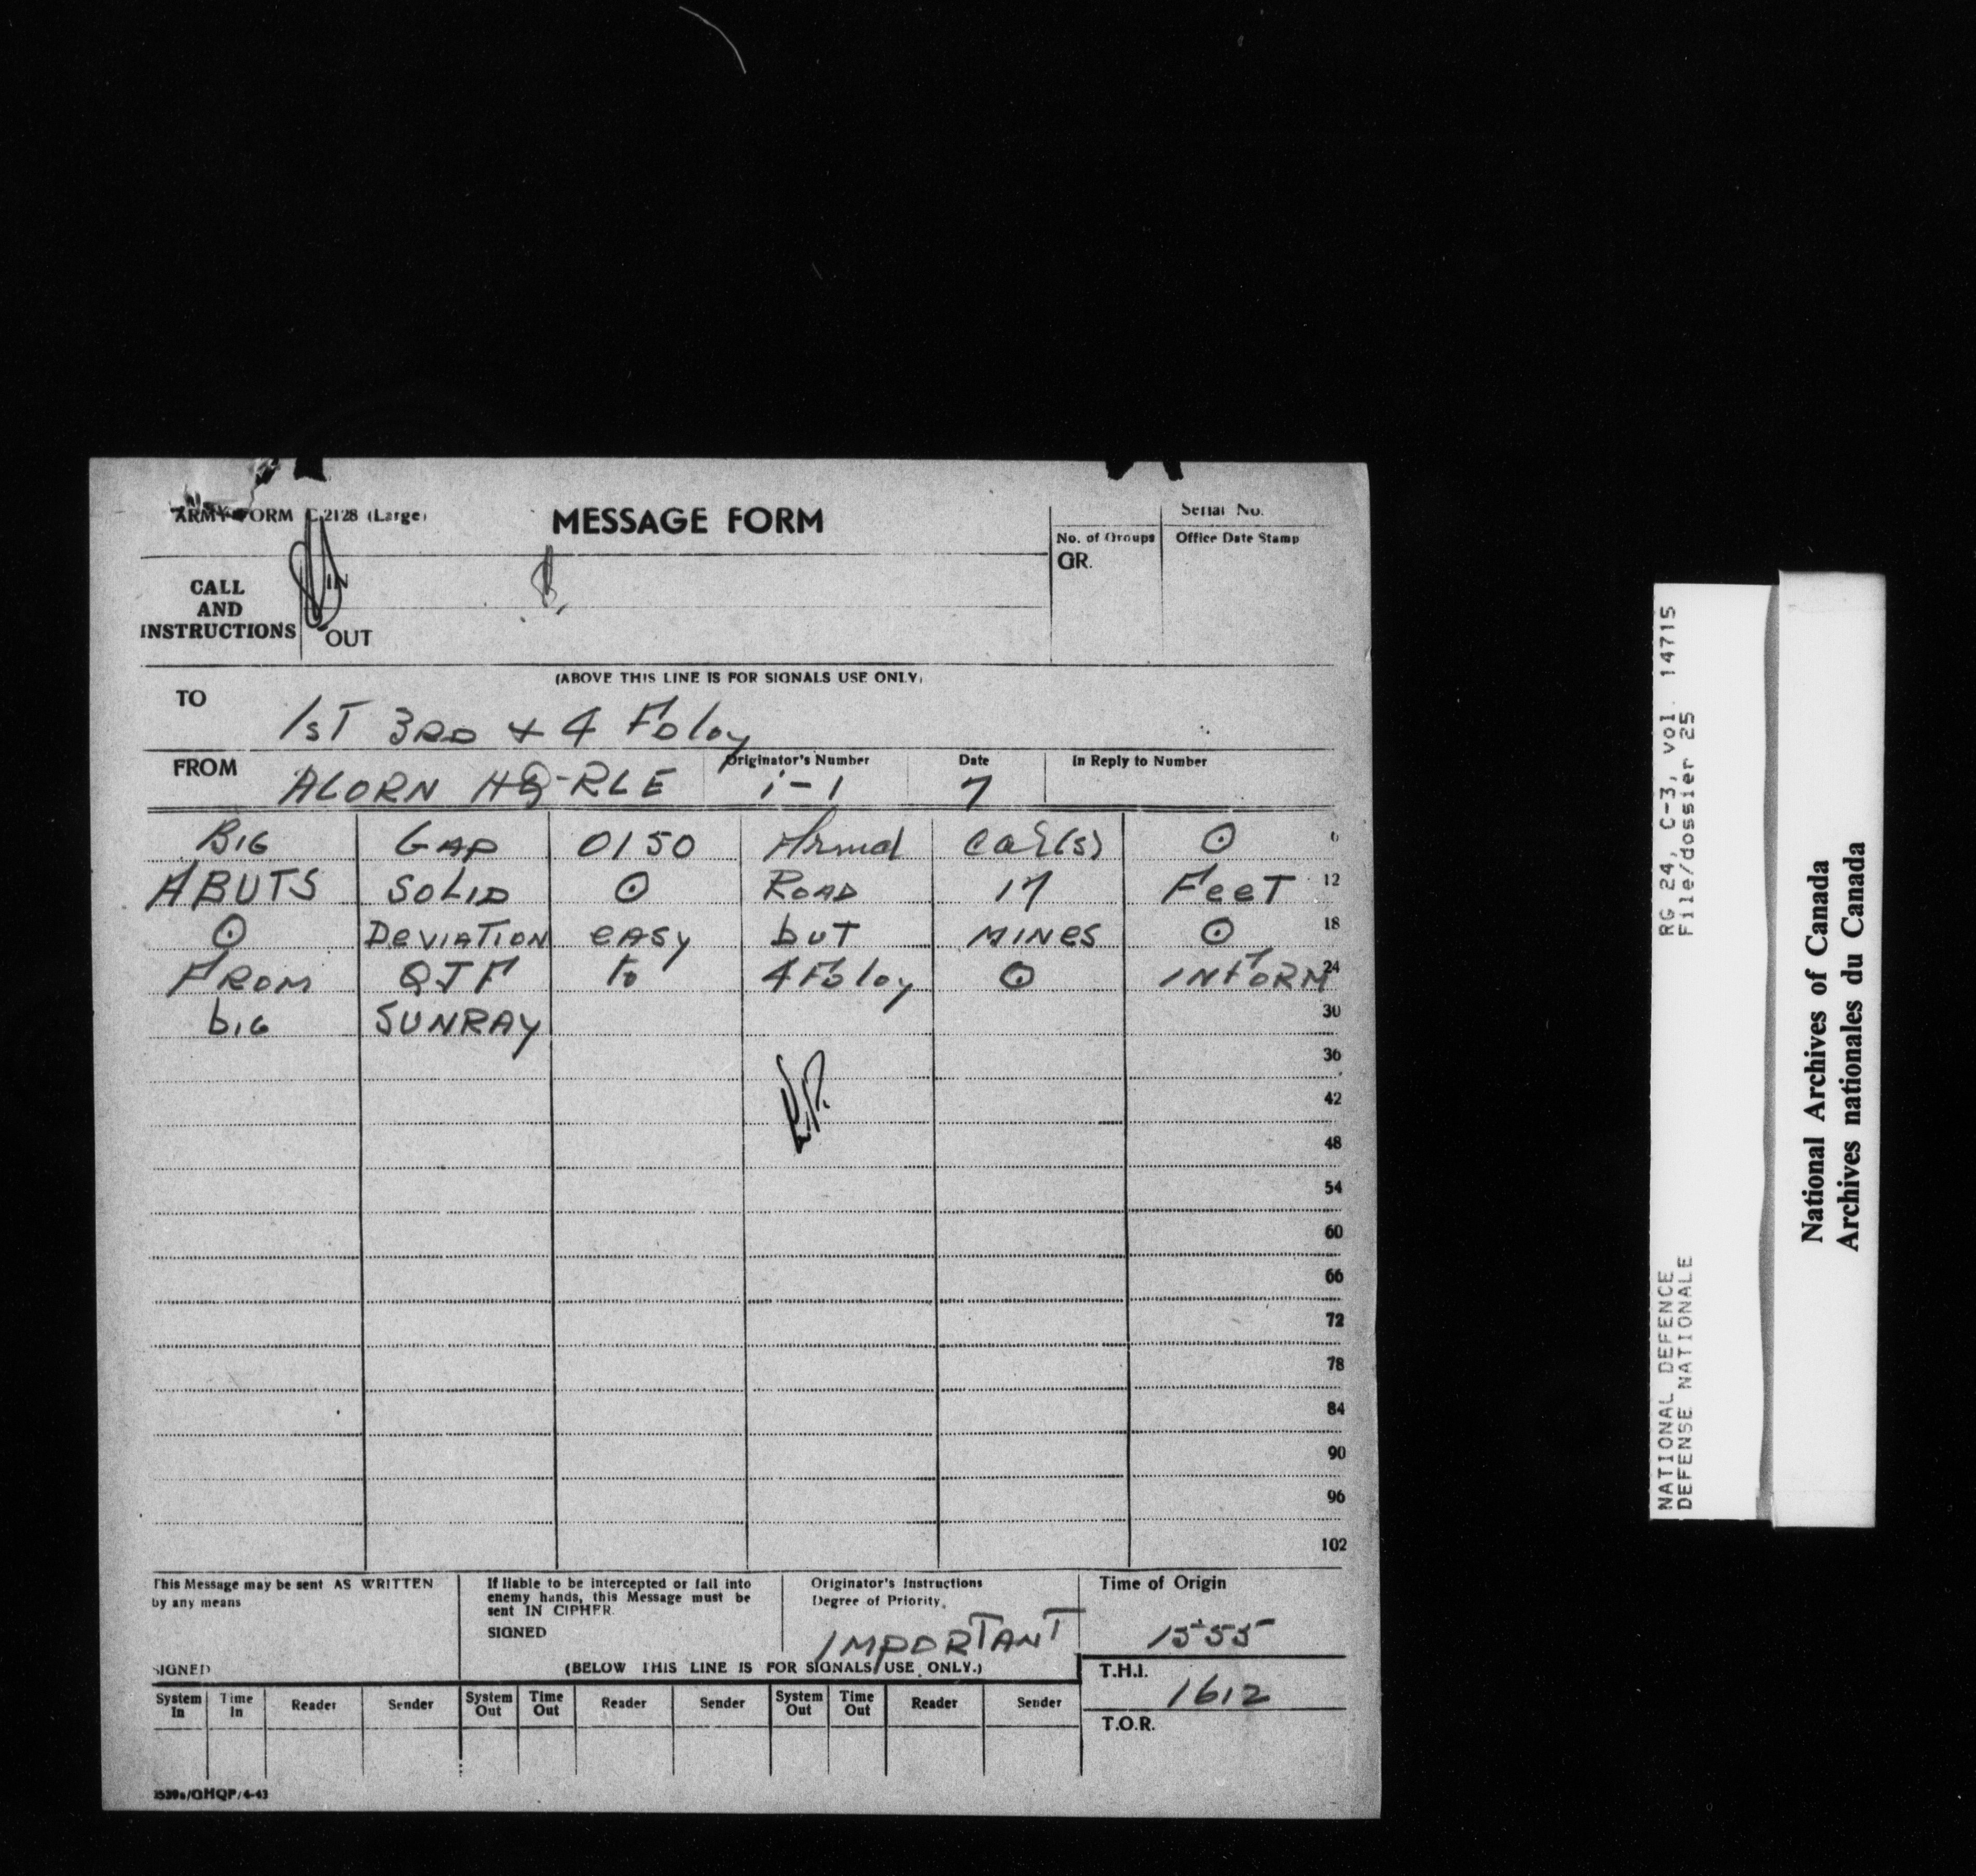 ARMY FORM C 2128 (Large)
MESSAGE FORM
Serial No.
No. of Groups
Office Date Stamp
GR.
CALL
AND
INSTRUCTIONS
IN
OUT
(ABOVE THIS LINE IS FOR SIGNALS USE ONLY)
TO
1ST 3RD + 4 Fdloy
FROM
Originator's Number
Date
In Reply to Number
ACORN HQ-RCE i-1 7
BIG GAP 0150 Armd CaR(s) ⊙ 6
ABUTS SOLID ⊙ ROAD 17 FeeT 12
⊙ DeVIATION eASy buT MINES ⊙ 18
FROM QJF To 4 Fdloy ⊙ INFORM 24
bIG SUNRAY 30
36
42
48
54
60
66
72
78
84
90
96
102
This Message may be sent AS WRITTEN
by any means
SIGNED
If liable to be intercepted or fall into
enemy hands, this Message must be
sent IN CIPHER.
SIGNED
Originator's Instructions
Degree of Priority.
IMPORTANT
Time of Origin
1555
(BELOW THIS LINE IS FOR SIGNALS USE ONLY.)
T.H.I.
1612
T.O.R.
System In Time In Reader Sender System Out Time Out Reader Sender System Out Time Out Reader Sender
/GHQP/4-43
RG 24, C-3, vol. 14715
File/dossier 25
NATIONAL DEFENCE
DEFENSE NATIONALE
National Archives of Canada
Archives nationales du Canada